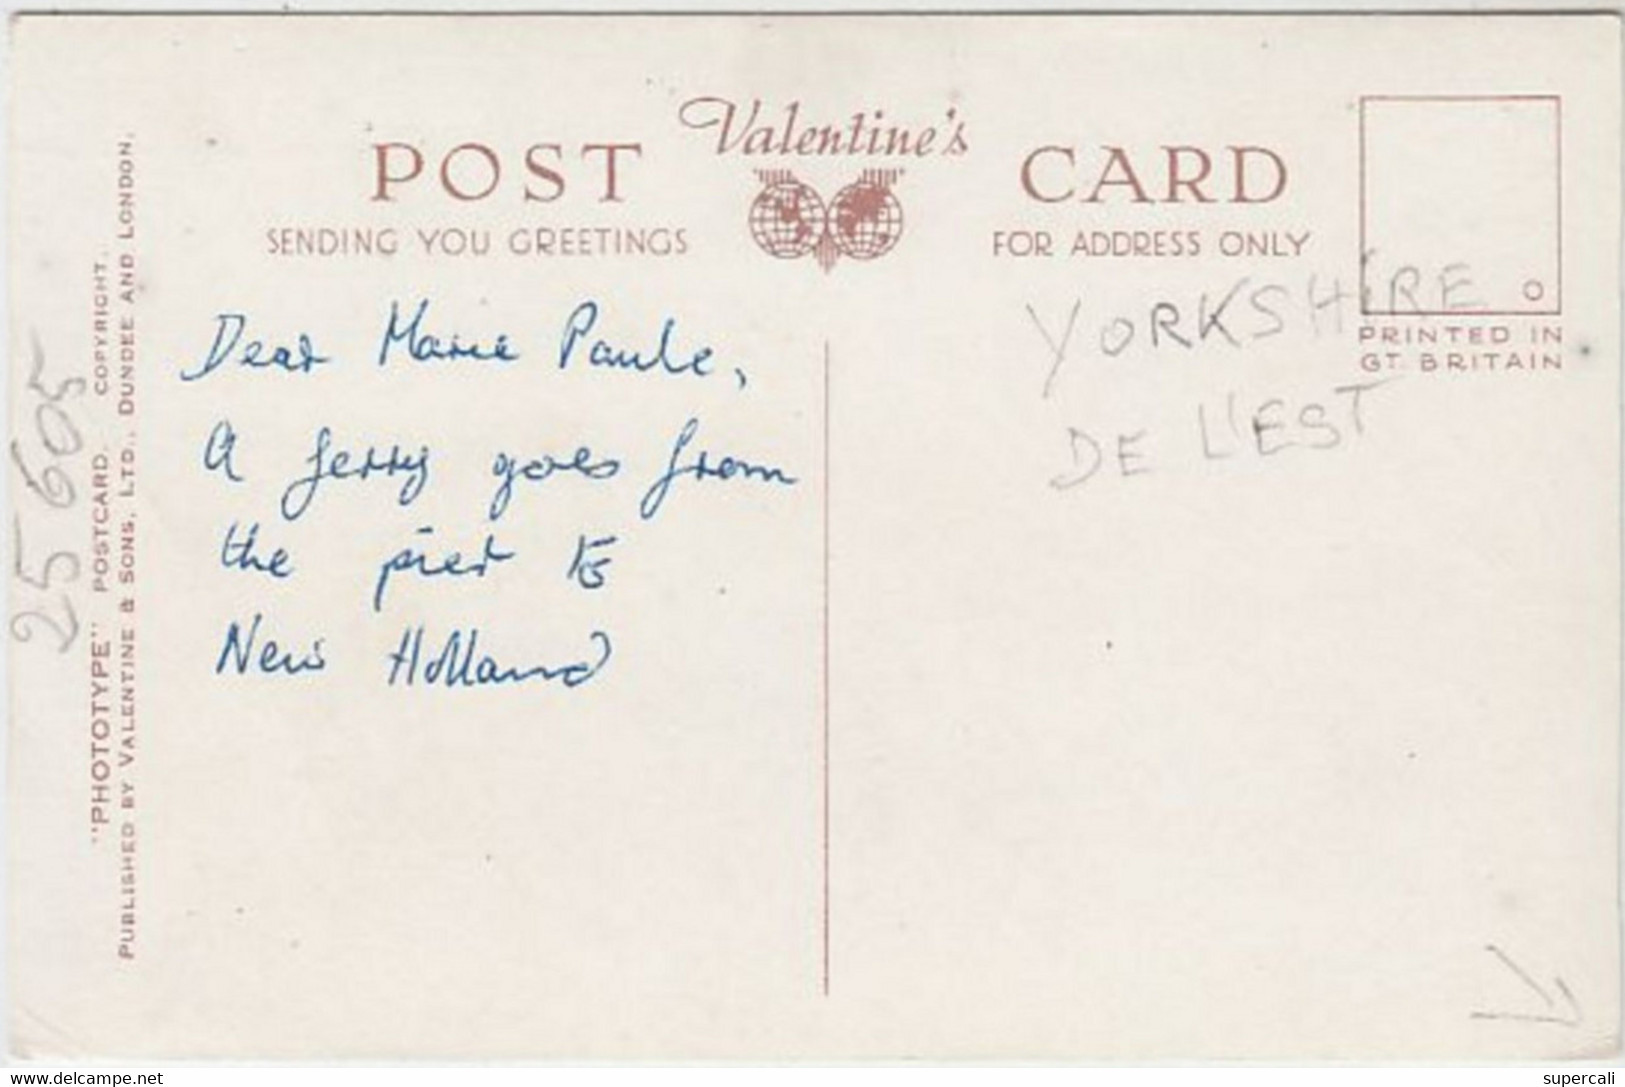 Valentine's
POST CARD
SENDING YOU GREETINGS
FOR ADDRESS ONLY
PRINTED IN
GT. BRITAIN
Dear Marie Paule,
A ferry goes from
the pier to
New Holland
YORKSHIRE
DE L'EST
25 605
"PHOTOTYPE" POSTCARD. COPYRIGHT.
PUBLISHED BY VALENTINE & SONS, LTD., DUNDEE AND LONDON.
www.delcampe.net
supercali